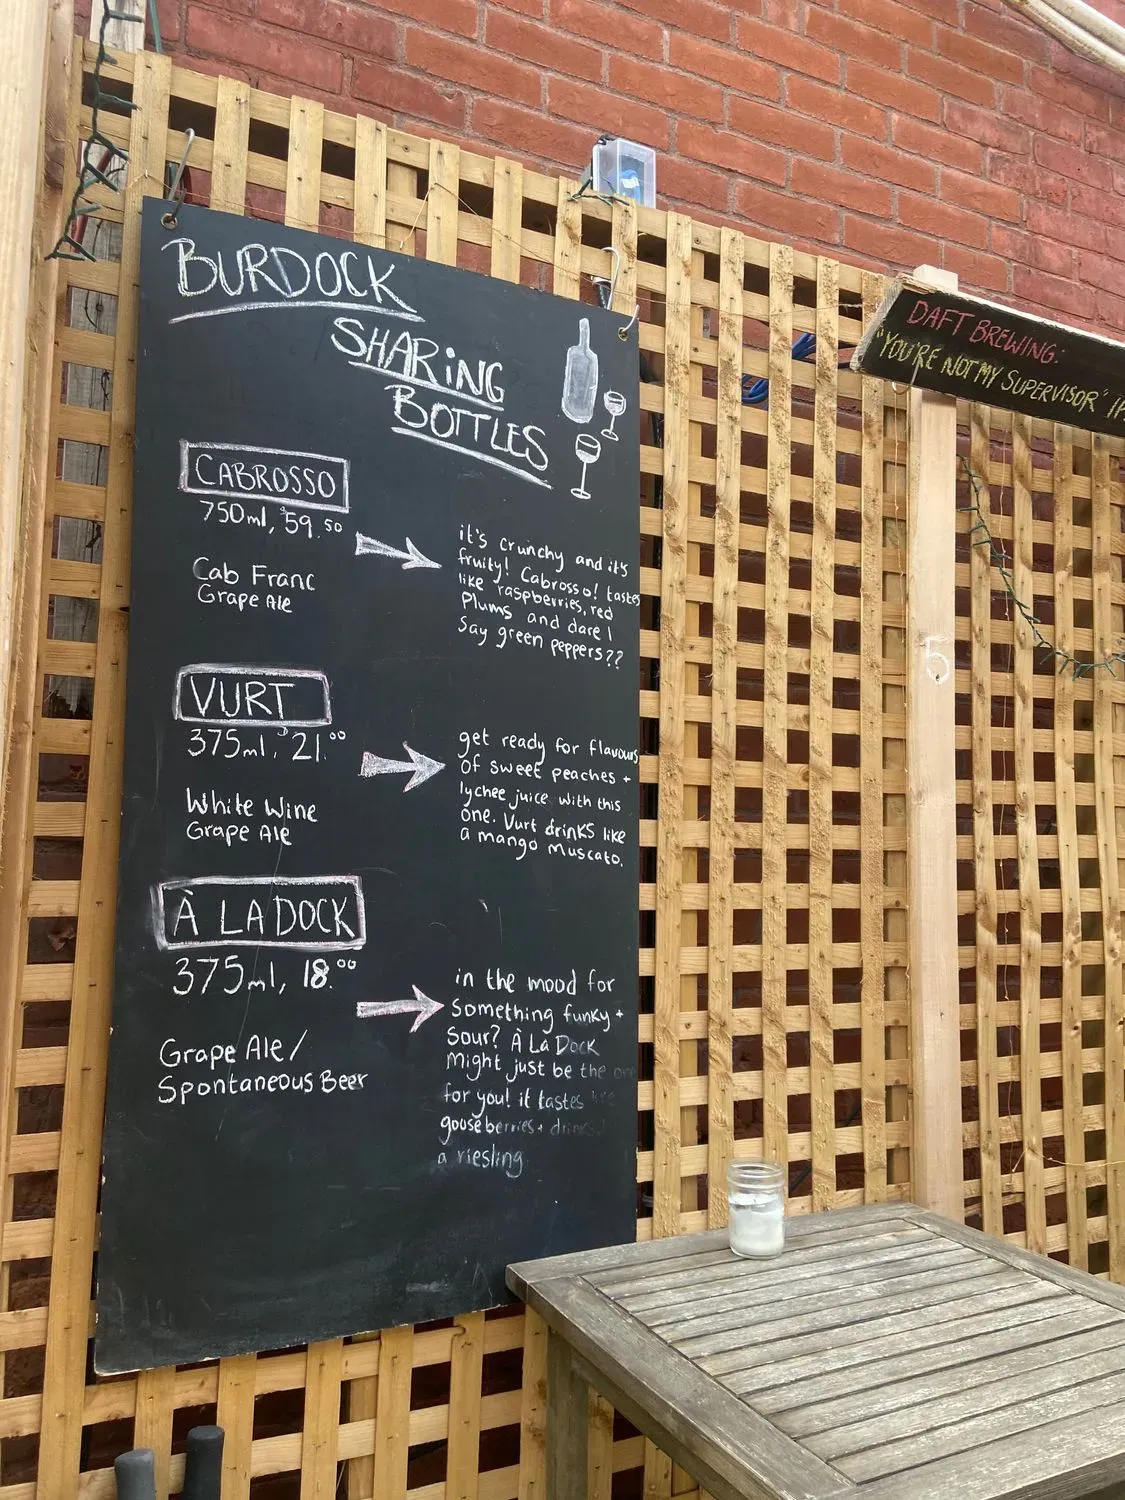 BURDOCK
SHARING
BOTTLES
CABROSSO
750ml, $59.50
Cab Franc
Grape Ale
it's crunchy and it's
fruity! Cabrosso! tastes
like raspberries, red
Plums and dare I
Say green peppers??
VURT
375ml, $21.00
White Wine
Grape Ale
get ready for flavours
of sweet peaches +
lychee juice with this
one. Vurt drinks like
a mango Muscato.
À LA DOCK
375ml, 18.00
Grape Ale/
Spontaneous Beer
in the mood for
Something funky +
Sour? À La Dock
Might just be the one
for you! it tastes like
gooseberries + drinks
a riesling
DAFT BREWING:
"YOU'RE NOT MY SUPERVISOR"
5